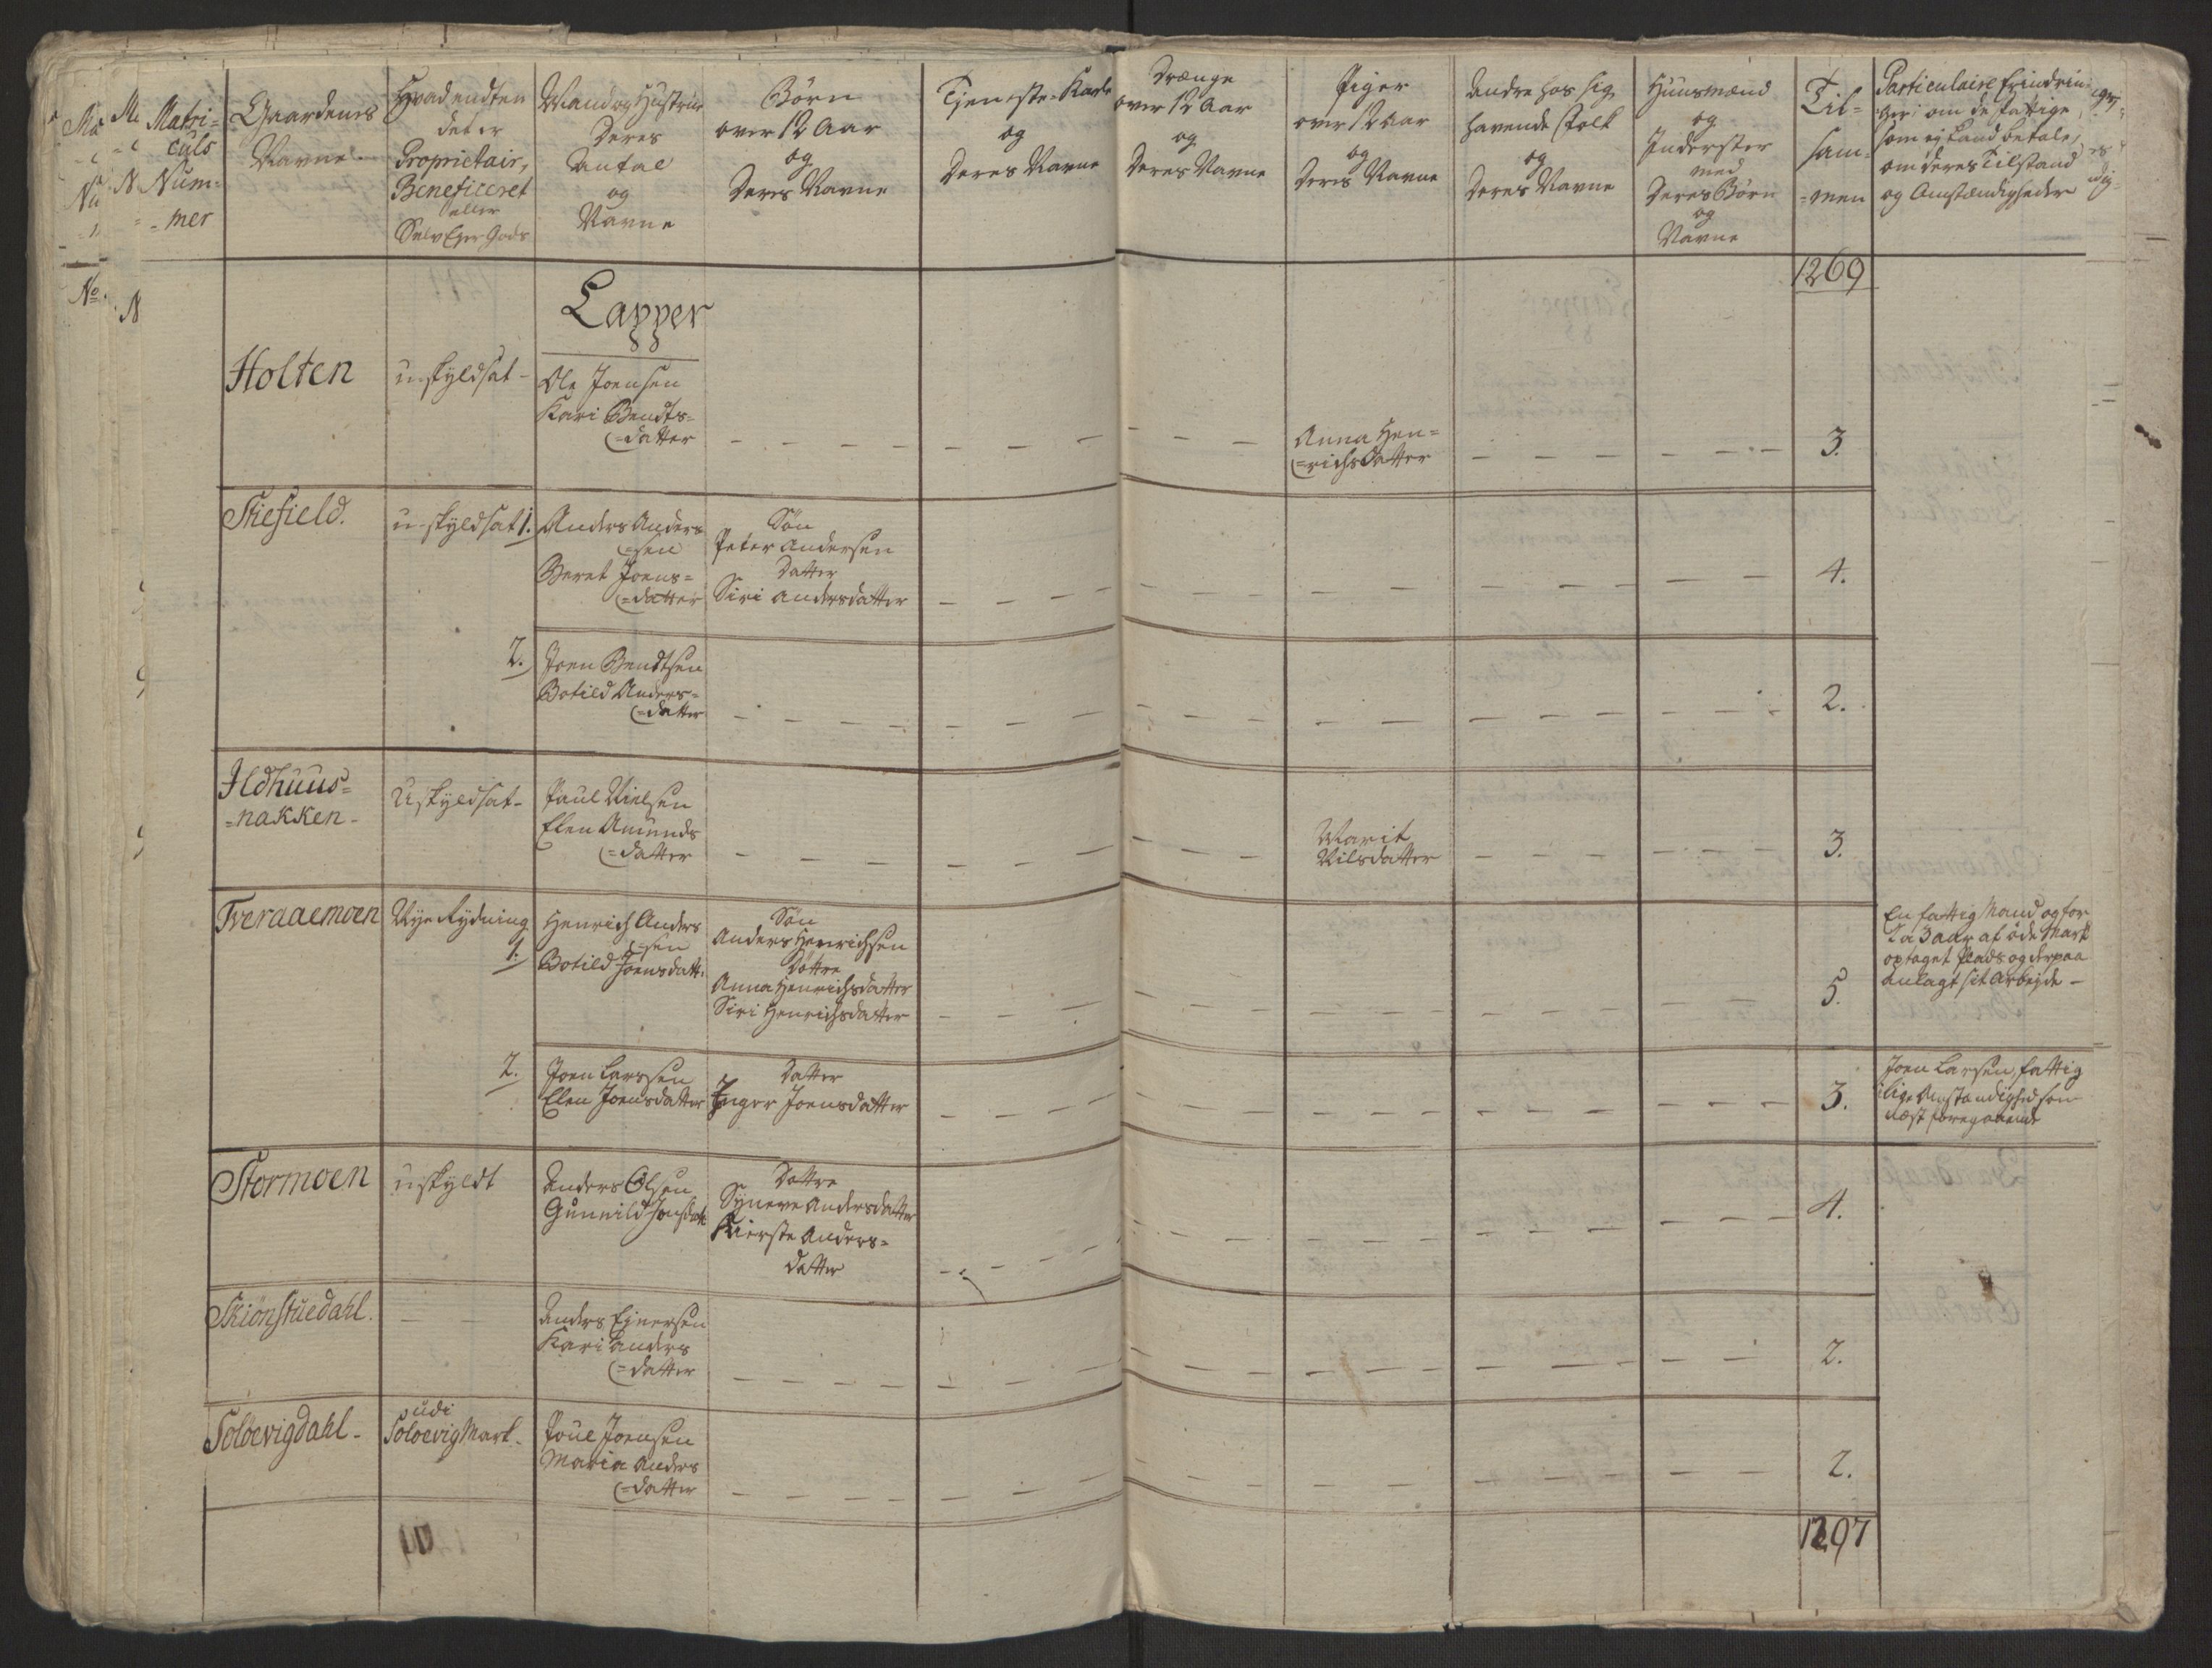 Matri=
culs
Num=
=mer
Gaardenes
Navne
Hvad endten
det er
Proprietair,
Beneficeret
eller
SelvEyer Gods
Mand og Hustrue
Deres
Antal
og
Navne
Børn
over 12 Aar
og
Deres Navne
Tjeneste-Karle
og
Deres Navne
Drænge
over 12 Aar
og
Deres Navne
Piger
over 12 Aar
og
Deris Navne
Andre hos sig
havende Folk
og
Deres Navne
Huusmænd
og
Inderster
med
Deres Børn
og
Navne
Til=
sam=
=men
Particulaire
om de fattige,
som ej kand betale,
om deres Tilstand
og Omstændigheder
1269
Lapper
Holten
uskyldsat -
Ole Joensen
Kari Bendts=
=datter
Anna Hen=
=richsdatter
3.
Stiefield.
u-skyldsat 1.
Anders Anders
=sen
Beret Joens=
=datter
Søn
Peter Andersen
Datter
Siri Andersdatter
4.
2.
Joen Bendtsen
Botild Anders=
=datter
2.
Ildhuus=
=nakken-
Uskyldsat-
Paul Nielsen
Elen Amunds
=datter
Marit
Nilsdatter
3.
Tveraaemoen
Nye Rydning
1.
Henrich Anders
=sen
Botild Joensdatt:
Søn
Anders Henrichsen
Døttre
Anna Henrichsdatter
Siri Henrichsdatter
5.
En fattig Mand og for
2 a 3 aar af øde Mark
optaget Plads og derpaa
anlagt sit Arbejde -
2.
Joen Larssen
Elen Joensdatter
Datter
Inger Joensdatter
3.
Joen Larsen, fattig
i lige Omstændighed som
næst foregaaende
Stormoen
uskyldt
Anders Olsen
Gunnild Jonsdatt
Døttre
Synneve Andersdatter
Kierste Anders=
datter
4.
Skiønstuedahl.
Anders Ejversen
Kari Anders
=datter
2.
Soløevigdahl-
udi
Soloevig Mark-
Poul Joensen
Maria Anders
=datter
2.
1297